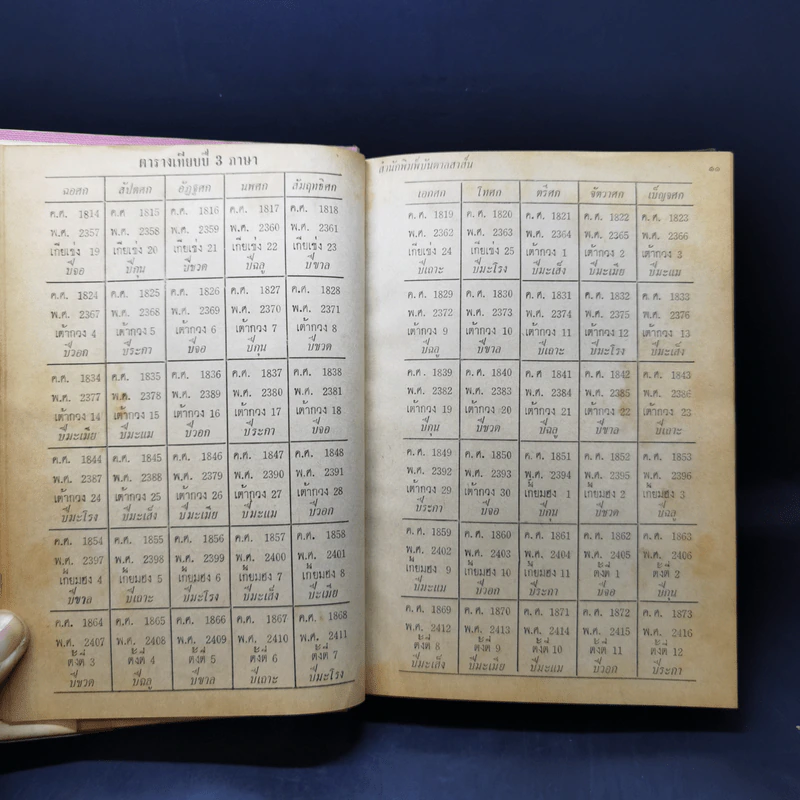 ตารางเทียบปี 3 ภาษา
ฉอศก สัปตศก อัฏฐศก นพศก สัมฤทธิศก
ค.ศ. 1814 ค.ศ 1815 ค.ศ. 1816 ค.ศ. 1817 ค.ศ. 1818
พ.ศ. 2357 พ.ศ. 2358 พ.ศ. 2359 พ.ศ. 2360 พ.ศ. 2361
เกียเข่ง 19 เกียเข่ง 20 เกียเข่ง 21 เกียเข่ง 22 เกียเข่ง 23
ปีจอ ปีกุน ปีชวด ปีฉลู ปีขาล
ค.ศ. 1824 ค.ศ. 1825 ค.ศ. 1826 ค.ศ. 1827 ค.ศ. 1828
พ.ศ. 2367 พ.ศ. 2368 พ.ศ. 2369 พ.ศ. 2370 พ.ศ. 2371
เต้ากวง 4 เต้ากวง 5 เต้ากวง 6 เต้ากวง 7 เต้ากวง 8
ปีวอก ปีระกา ปีจอ ปีกุน ปีชวด
ค.ศ. 1834 ค.ศ. 1835 ค.ศ. 1836 ค.ศ. 1837 ค.ศ. 1838
พ.ศ. 2377 พ.ศ. 2378 พ.ศ. 2389 พ.ศ. 2380 พ.ศ. 2381
เต้ากวง 14 เต้ากวง 15 เต้ากวง 16 เต้ากวง 17 เต้ากวง 18
ปีมะเมีย ปีมะแม ปีวอก ปีระกา ปีจอ
ค.ศ. 1844 ค.ศ. 1845 ค.ศ. 1846 ค.ศ. 1847 ค.ศ. 1848
พ.ศ. 2387 พ.ศ. 2388 พ.ศ. 2379 พ.ศ. 2390 พ.ศ. 2391
เต้ากวง 24 เต้ากวง 25 เต้ากวง 26 เต้ากวง 27 เต้ากวง 28
ปีมะโรง ปีมะเส็ง ปีมะเมีย ปีมะแม ปีวอก
ค.ศ. 1854 ค.ศ. 1855 ค.ศ. 1856 ค.ศ. 1857 ค.ศ. 1858
พ.ศ. 2397 พ.ศ. 2398 พ.ศ. 2399 พ.ศ. 2400 พ.ศ. 2401
4 5 6 7 8
ปีขาล ปีเถาะ ปีมะโรง ปีมะเส็ง ปีมะเมีย
ค.ศ. 1864 ค.ศ. 1865 ค.ศ. 1866 ค.ศ. 1867 ค.ศ. 1868
พ.ศ. 2407 พ.ศ. 2408 พ.ศ. 2409 พ.ศ. 2410 พ.ศ. 2411
3 4 5 6 7
ปีชวด ปีฉลู ปีขาล ปีเถาะ ปีมะโรง
สำนักพิมพ์บันดาลสาส์น ๑๑
เอกศก โทศก ตรีศก จัตวาศก เบ็ญจศก
ค.ศ. 1819 ค.ศ. 1820 ค.ศ. 1821 ค.ศ. 1822 ค.ศ. 1823
พ.ศ. 2362 พ.ศ. 2363 พ.ศ. 2364 พ.ศ. 2365 พ.ศ. 2366
เกียเข่ง 24 เกียเข่ง 25 เต้ากวง 1 เต้ากวง 2 เต้ากวง 3
ปีเถาะ ปีมะโรง ปีมะเส็ง ปีมะเมีย ปีมะแม
ค.ศ. 1829 ค.ศ. 1830 ค.ศ. 1831 ค.ศ. 1832 ค.ศ. 1833
พ.ศ. 2372 พ.ศ. 2373 พ.ศ. 2374 พ.ศ. 2375 พ.ศ. 2376
เต้ากวง 9 เต้ากวง 10 เต้ากวง 11 เต้ากวง 12 เต้ากวง 13
ปีฉลู ปีขาล ปีเถาะ ปีมะโรง ปีมะเส็ง
ค.ศ. 1839 ค.ศ. 1840 ค.ศ 1841 ค.ศ. 1842 ค.ศ. 1843
พ.ศ. 2382 พ.ศ. 2383 พ.ศ. 2384 พ.ศ. 2385 พ.ศ. 2386
เต้ากวง 19 เต้ากวง 20 เต้ากวง 21 เต้ากวง 22 เต้ากวง 23
ปีกุน ปีชวด ปีฉลู ปีขาล ปีเถาะ
ค.ศ. 1849 ค.ศ. 1850 ค.ศ. 1851 ค.ศ. 1852 ค.ศ. 1853
พ.ศ. 2392 พ.ศ. 2393 พ.ศ. 2394 พ.ศ. 2395 พ.ศ. 2396
เต้ากวง 29 เต้ากวง 30 1 2 3
ปีระกา ปีจอ ปีกุน ปีชวด ปีฉลู
ค.ศ. 1859 ค.ศ. 1860 ค.ศ. 1861 ค.ศ. 1862 ค.ศ. 1863
พ.ศ. 2402 พ.ศ. 2403 พ.ศ. 2404 พ.ศ. 2405 พ.ศ. 2406
9 10 11 1 2
ปีมะแม ปีวอก ปีระกา ปีจอ ปีกุน
ค.ศ. 1869 ค.ศ. 1870 ค.ศ. 1871 ค.ศ. 1872 ค.ศ. 1873
พ.ศ. 2412 พ.ศ. 2413 พ.ศ. 2414 พ.ศ. 2415 พ.ศ. 2416
8 9 10 11 12
ปีมะเส็ง ปีมะเมีย ปีมะแม ปีวอก ปีระกา